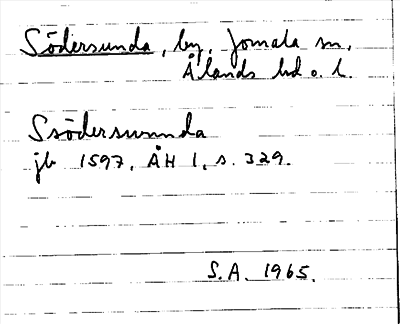 Södersunda, by, Jomala sn,
Ålands hd o. l.
Ssödersuunda
jb 1597, ÅH 1, s. 329.
S.A. 1965.